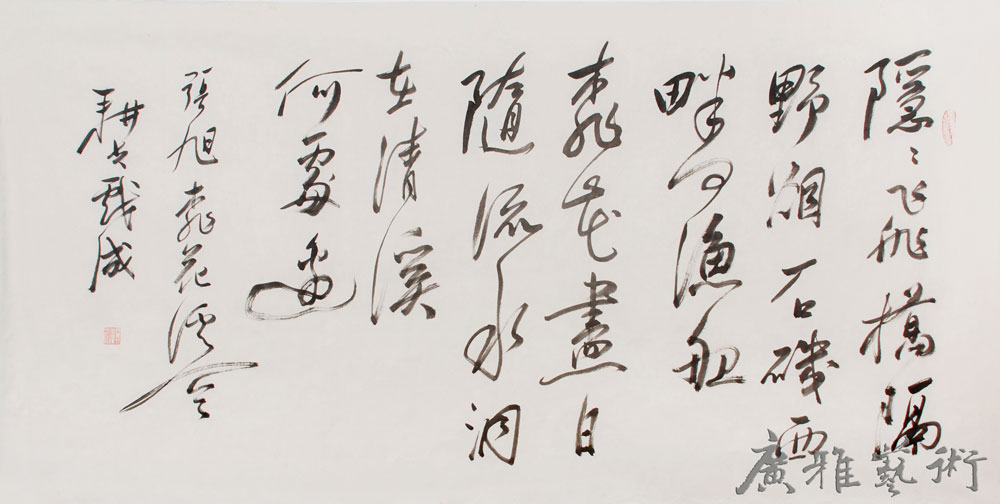 隱〻飛橋隔
野烟石磯西
畔问漁船
桃花盡日
隨流水洞
在清溪
何處邊
張旭桃花溪
耕戲成
廣雅藝術